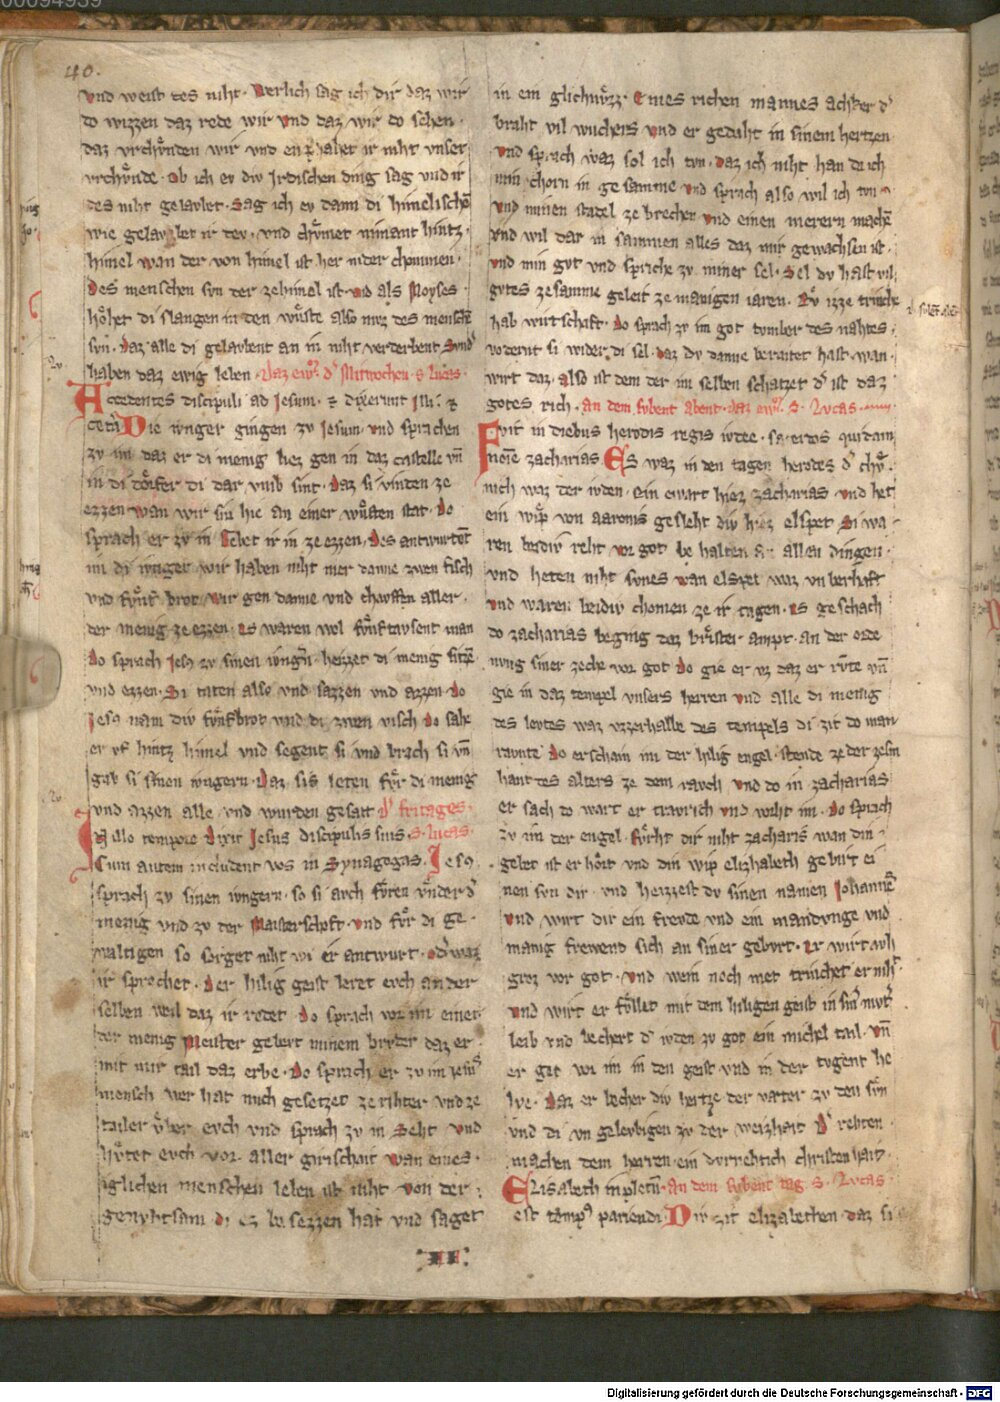 40.
vnd weist des niht. Werlich sag ich dir daz wir
do wizzen daz rede wir vnd daz wir do sehen.
daz vrchůnden wir vnd enphahet ir niht vnser
vrchůnde. Ob ich ev div Irdischen ding sag vnd ir
des niht gelavbet. Sag ich ev dann di himelischē
wie gelavbet ir dev. vnd chůmet niman hintz.
himel wan der von himel ist her nider chommen.
Des menschen svn der ze himel ist. vnd als Moyses
hǒhet di slangen in den wůste also mvz des mensch
svn. daz alle di gelavbent an in niht verderbent Svnd
haben daz ewig leben. Daz ew. d' Mitwochen. S. Lucas.
Accedentes discipuli ad Jesum. et dixerunt Illi. et
ceta Die ivnger gingen zv Jesum. vnd sprachen
zv im daz er di menig hiez gen in daz castelle vn
in di dǒrfer di dar vmb sint. daz si vinden ze
ezzen wan wir sin hie an einer wůsten stat. do
sprach er zv in Gebet ir in ze ezzen. Des antwurtēt
im di ivnger wir haben niht mer danne zwen fisch
vnd fvnf brot. wir gen danne vnd chauffen aller.
der menig ze ezzen. es waren wol fvnftavsent man
Do sprach Jesus zv sinen ivngern. heizzet di menig sitzē
vnd ezzen. Si taten also vnd sazzen vnd azzen. do
Jesus nam div fvnfbrot vnd di zwen visch do sahe
er vf hintz himel vnd segent si vnd brach si vn
gab si sinen ivngern. daz sis leten fvr di menig
vnd azzen alle vnd wurden gesatt d' fritages.
In illo tempore dixit Jesus discipulis suis. S. Lucas.
Cum autem inducent vos in Synagogas. Jesus
sprach zv sinen ivngern. so si avch fůren vnder d'
menig vnd zv der Maisterschaft. vnd fvr di ge.
waltigen so sorget niht wi ir antwurt. oder waz
ir sprechet. der hilig geist leret evch an der
selben weil daz ir redet. do sprach vor im einer
der menig Meister gebevt minem brvder daz er
mit mir tail daz erbe. Do sprach er zv im
mensch wer hat mich gesetzet ze rihter vnd ze
tailer vber evch vnd sprach zv in Seht vnd
hvtet evch vor aller girischait wan eines.
iglichen menschen leben ist niht von der
genvhtsam di ez besezzen hat vnd saget
in ein glichnvzz. Eines richen mannes achker d'
braht vil wuchers vnd er gedaht in sinem hertzen
vnd sprach waz sol ich tvn. daz ich niht han da ich
min chorn in gesamme vnd sprach also wil ich tvn
vnd minen stadel zebrechen vnd einen merern machē
vnd wil dar in sammen alles daz mir gewachsen ist.
vnd min gvt vnd spriche zv miner sel. Sel dv hast vil
gvtes zesamme geleit ze manigen iaren. Nv izze trinche
hab wirtschaft. do sprach zv im got tvmber des nahtes
vodernt si wider di sel. daz dv danne beraitet hast. wan
wirt daz. also ist dem der im selben schatzet d' ist daz
gotes rich. An dem svbent abent. daz ew. S. Lvcas.
Fvit in diebus herodis regis ivdee. sacerdos quidam
noīe zacharias. Es waz in den tagen herodes d' chv
nich waz der ivden. Ein ewart hiez zacharias. vnd het
ein wip von aaronis gesleht div hiez elspet. Si wa.
ren beidiv reht vor got behalten an allen dingen.
vnd heten niht svnes wan elspet waz vnberhaft
vnd waren beidiv chomen ze ir tagen. es geschach
do zacharias beging daz brister ampt. an der orde
nvng siner zeche vor got. do gie er vz daz er rvte vn
gie in daz tempel vnsers herren vnd alle di menig
des levtes waz vzzerhalbe des tempels di zit do man
ravcte Do erschein im der hilig engel. stende ze der zesm
hant des alters ze dem ravch. vnd do in zacharias
er sach do wart er travrich vnd vorht im. do sprach
zv im der engel. fǔrcht dir niht zacharias wan din
gebet ist erhǒrt vnd din wip elizhabeth gebirt ei
nen svn dir. vnd heizzest dv sinen namen Johannē
vnd wirt dir ein frevde vnd ein mandvnge vnd
manig frewend sich an siner gebvrt. Er wirt avh
groz vor got. vnd wein noch met trinchet er niht.
vnd wirt er fǒllet mit dem hiligen geist in sinr mvter
leib vnd bechert d' ivden zv got ein michel tail. vn
er get vor im in den geist vnd in der tvgent he
lye. daz er becher div hertze der vater zv den svn
vnd di vngelevbigen zv der weizhait d' rehten
machen dem herren. ein dvrnehtich christenhait.
Elisabeth inpletum. An dem svbent tag. S. Lvcas.
est tempus pariendi. Dir zit elizabethen. daz si
II
Digitalisierung gefördert durch die Deutsche Forschungsgemeinschaft - DFG